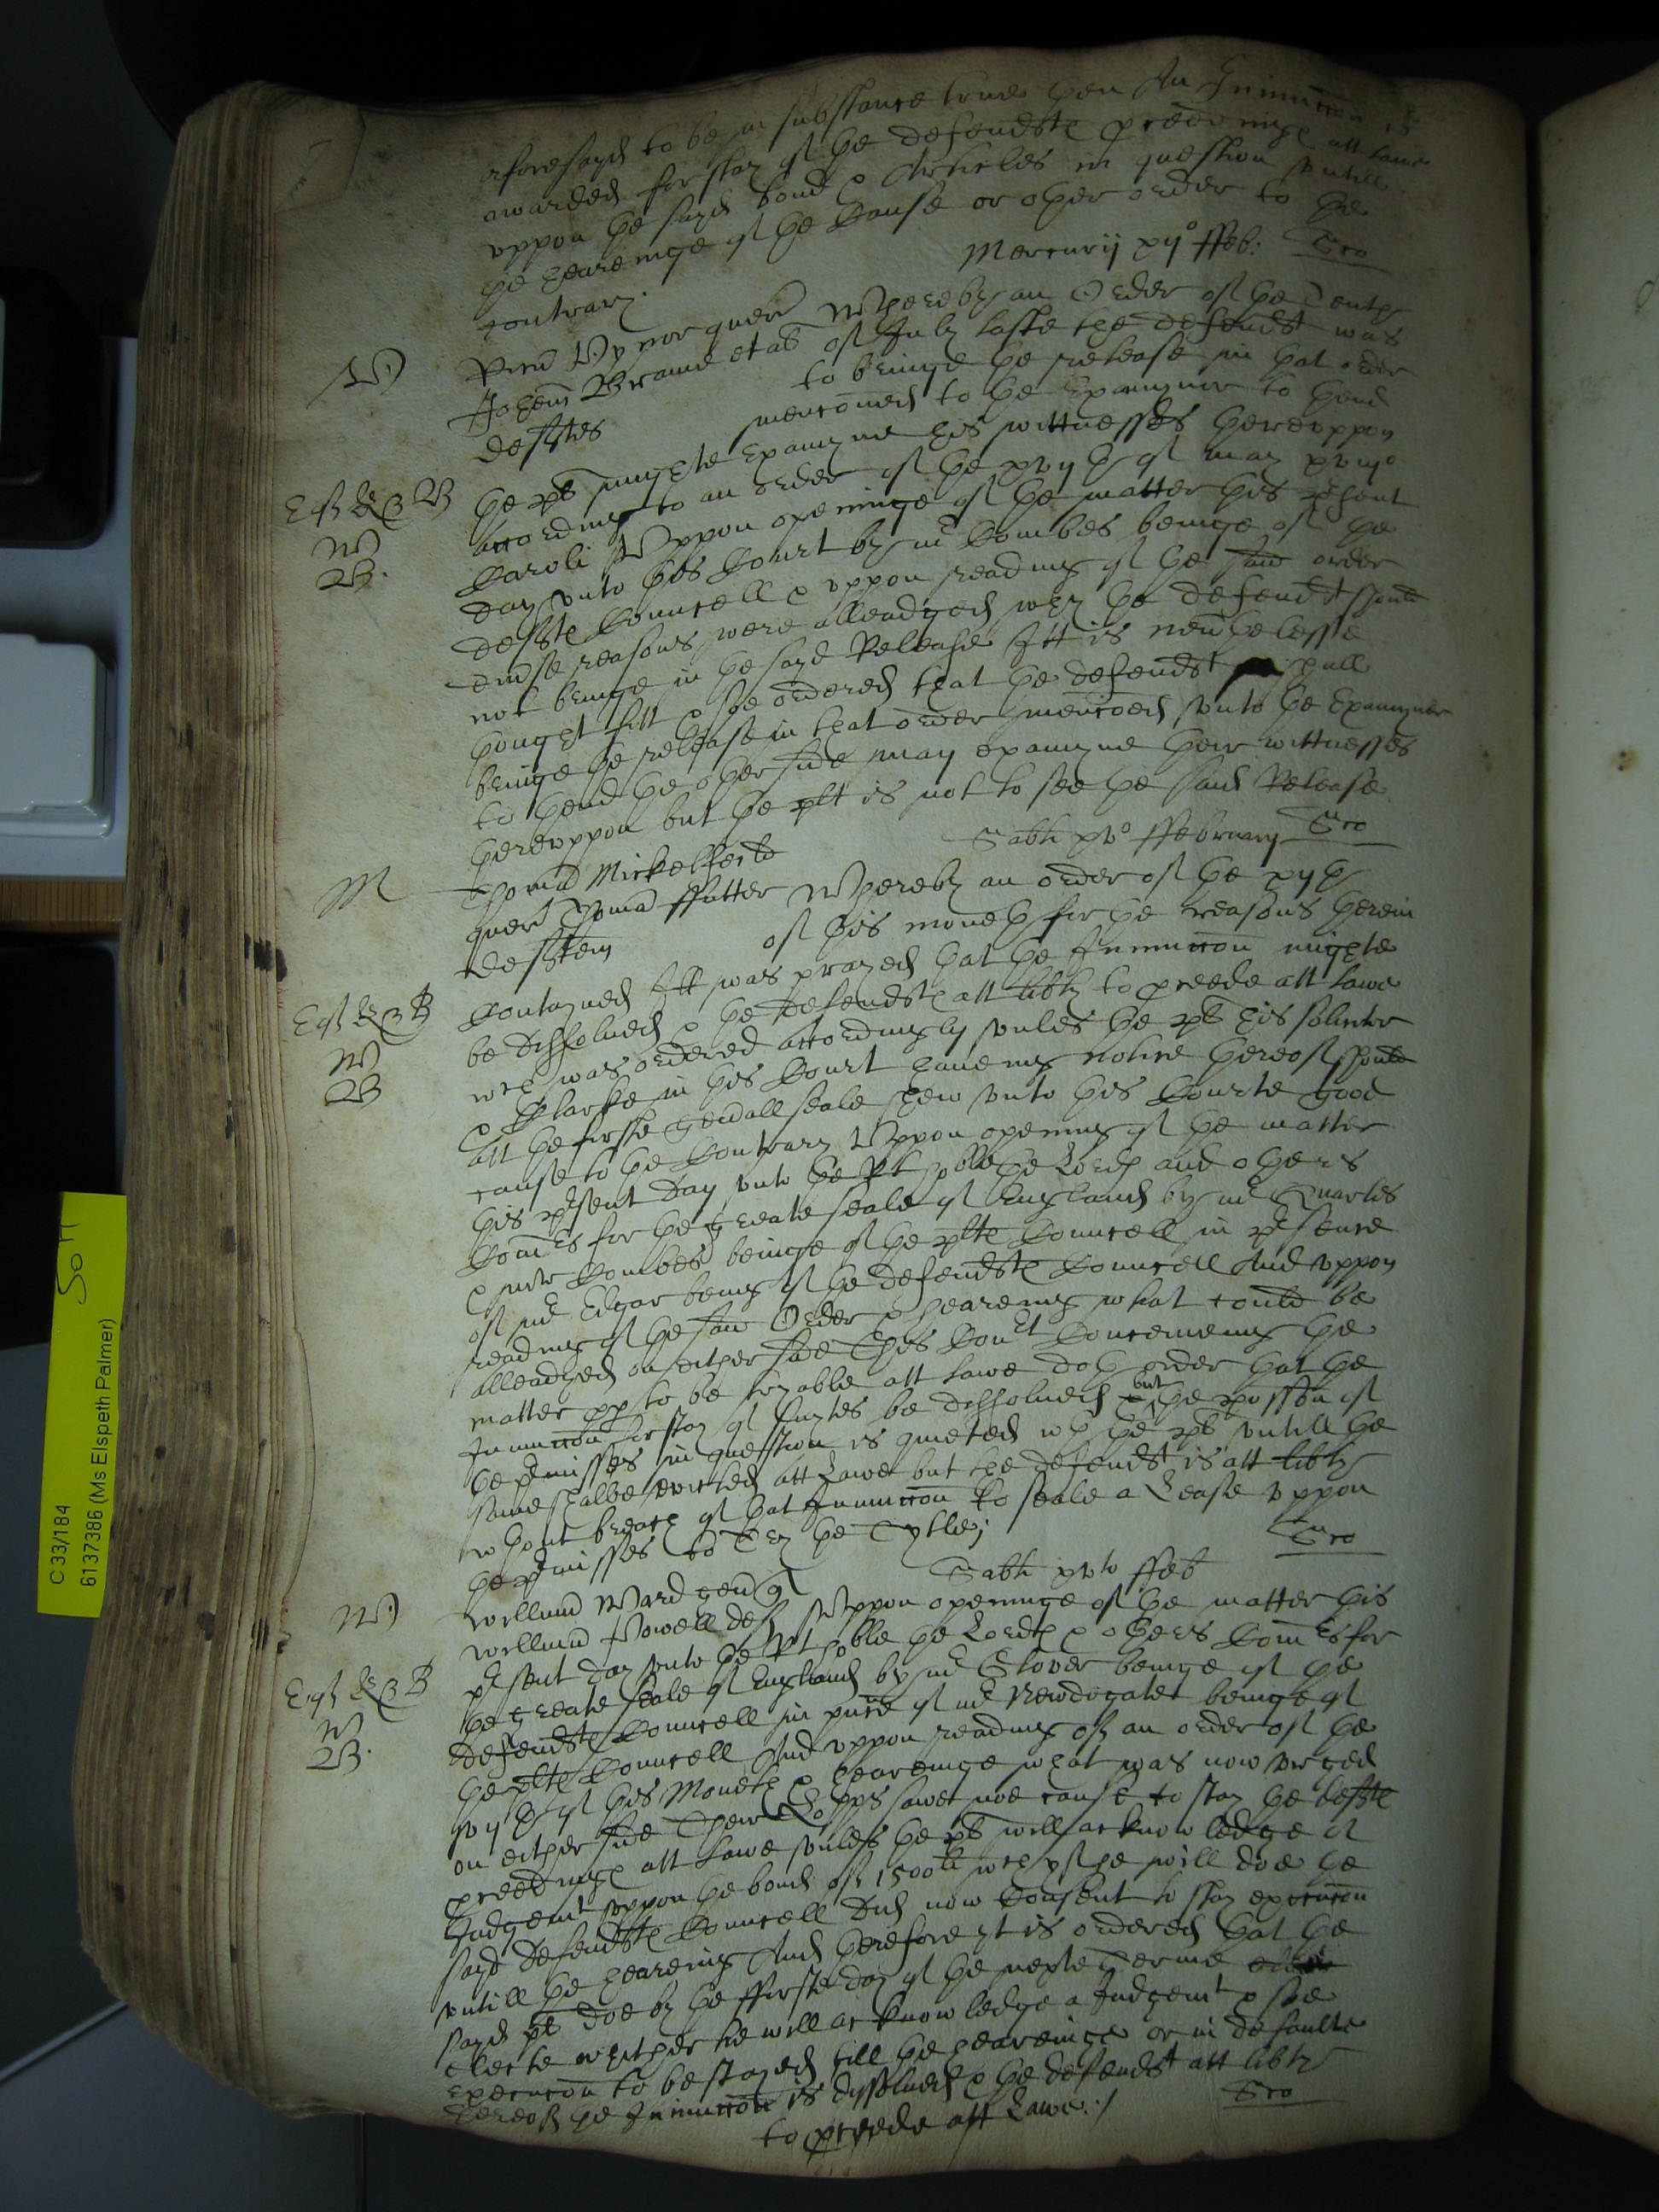 aforesayd to be in substance true then An Iniunccon is
awarded for stay of the defendte pceedinge att lawe
vppon the sayd bond & Articles in question vntill
the heareinge of the Cause or other order to the
contrary.
Mercurij xij° ffeb:
Whereby an Order of the Tenth
Johem Browne et al of July laste the defendt was
deftes to bringe the release in that order
menconed to the Examyner to thend
the pl mighte examyne his wittnesses therevppon
accordinge to an order of the xvijth of may
Caroli Vppon openinge of the matter this psent
day vnto this Court by mr Combes beinge of the
defte Councell & vppon readinge of the said order
reasons were alleadged why the defendt should
not bringe in the sayd Release Itt is neutheless
thought fitt & soe ordered that the defendt shall
bringe the release in that order mencoed vnto the Examyner
to thend the other side may examyne their wittnesses
therevppon but the plt is not to see the said Release
Sabti xv° ffebruary
M Thoma Mickelfeild
quer Thoma ffutter Whereby an order of the xijth
deften of this moneth for the reasons therein
Contayned Itt was prayed that the Iniunccon mighte
be dissolued & the defendte att libty to pceede att lawe
wch was ordered accordingly vnles the pl his sollicitor
& Clarke in this Court haueing notice thereof should
att the firste genall seale shew vnto this Courte good
cause to the Contrary Vppon openinge of the matter
this psent day vnto the Rt hoble the Lords and others
Comrs for the greate seale of England by mr Quarles
& mr Combes beinge of the plte Councell in psence
of mr Edgar being of the defendte Councell And vppon
reading of the said Order & heareing what could be
alleadged on either side This Court Conceiueing the
matter pp to be tryable att lawe doth order that the
Iniunccon for stay of suytes be dissolued but the possion of
the pmisses in question is quieted wth the pl vntill the
same shalbe euicted att Lawe but the defendt is att libty
wthout breach of that Iniunccon to seale a Lease vppon
the pmisses to Try the Tytle
Sabti xvto ffeb
W Willmu Ward gen q
Willmu Powell def Vppon openinge of the matter this
psent day vnto the Rt hoble the Lordes & others Comrs for
the greate seale of England by mr Glover beinge of the
defendte Councell in pnce of mr Newdogate beinge of
the plte Councell And vppon readinge of an order of the
vijth of this Moneth & heareinge what was now vrged
on either side Their Lopps sawe noe cause to stay the defte
pceedinge att lawe vnless the pl will acknowledge a
Judgemt vppon the bond of 1500li wch yf he will doe the
sayd defendte Councell did now Consent to stay execucon
vntill the heareing And therefore yt is ordered that the
sayd pl doe by the ffirste day of the nexte Terme
electe whether he will acknowledge a Judgemt & soe
execucon to be stayed till the heareinge or in defaulte
thereof the Iniunccon is dyssolued & the defendt att libty
to pceede att Lawe./
C 33/184
6137386 (Ms Elspeth Palmer)